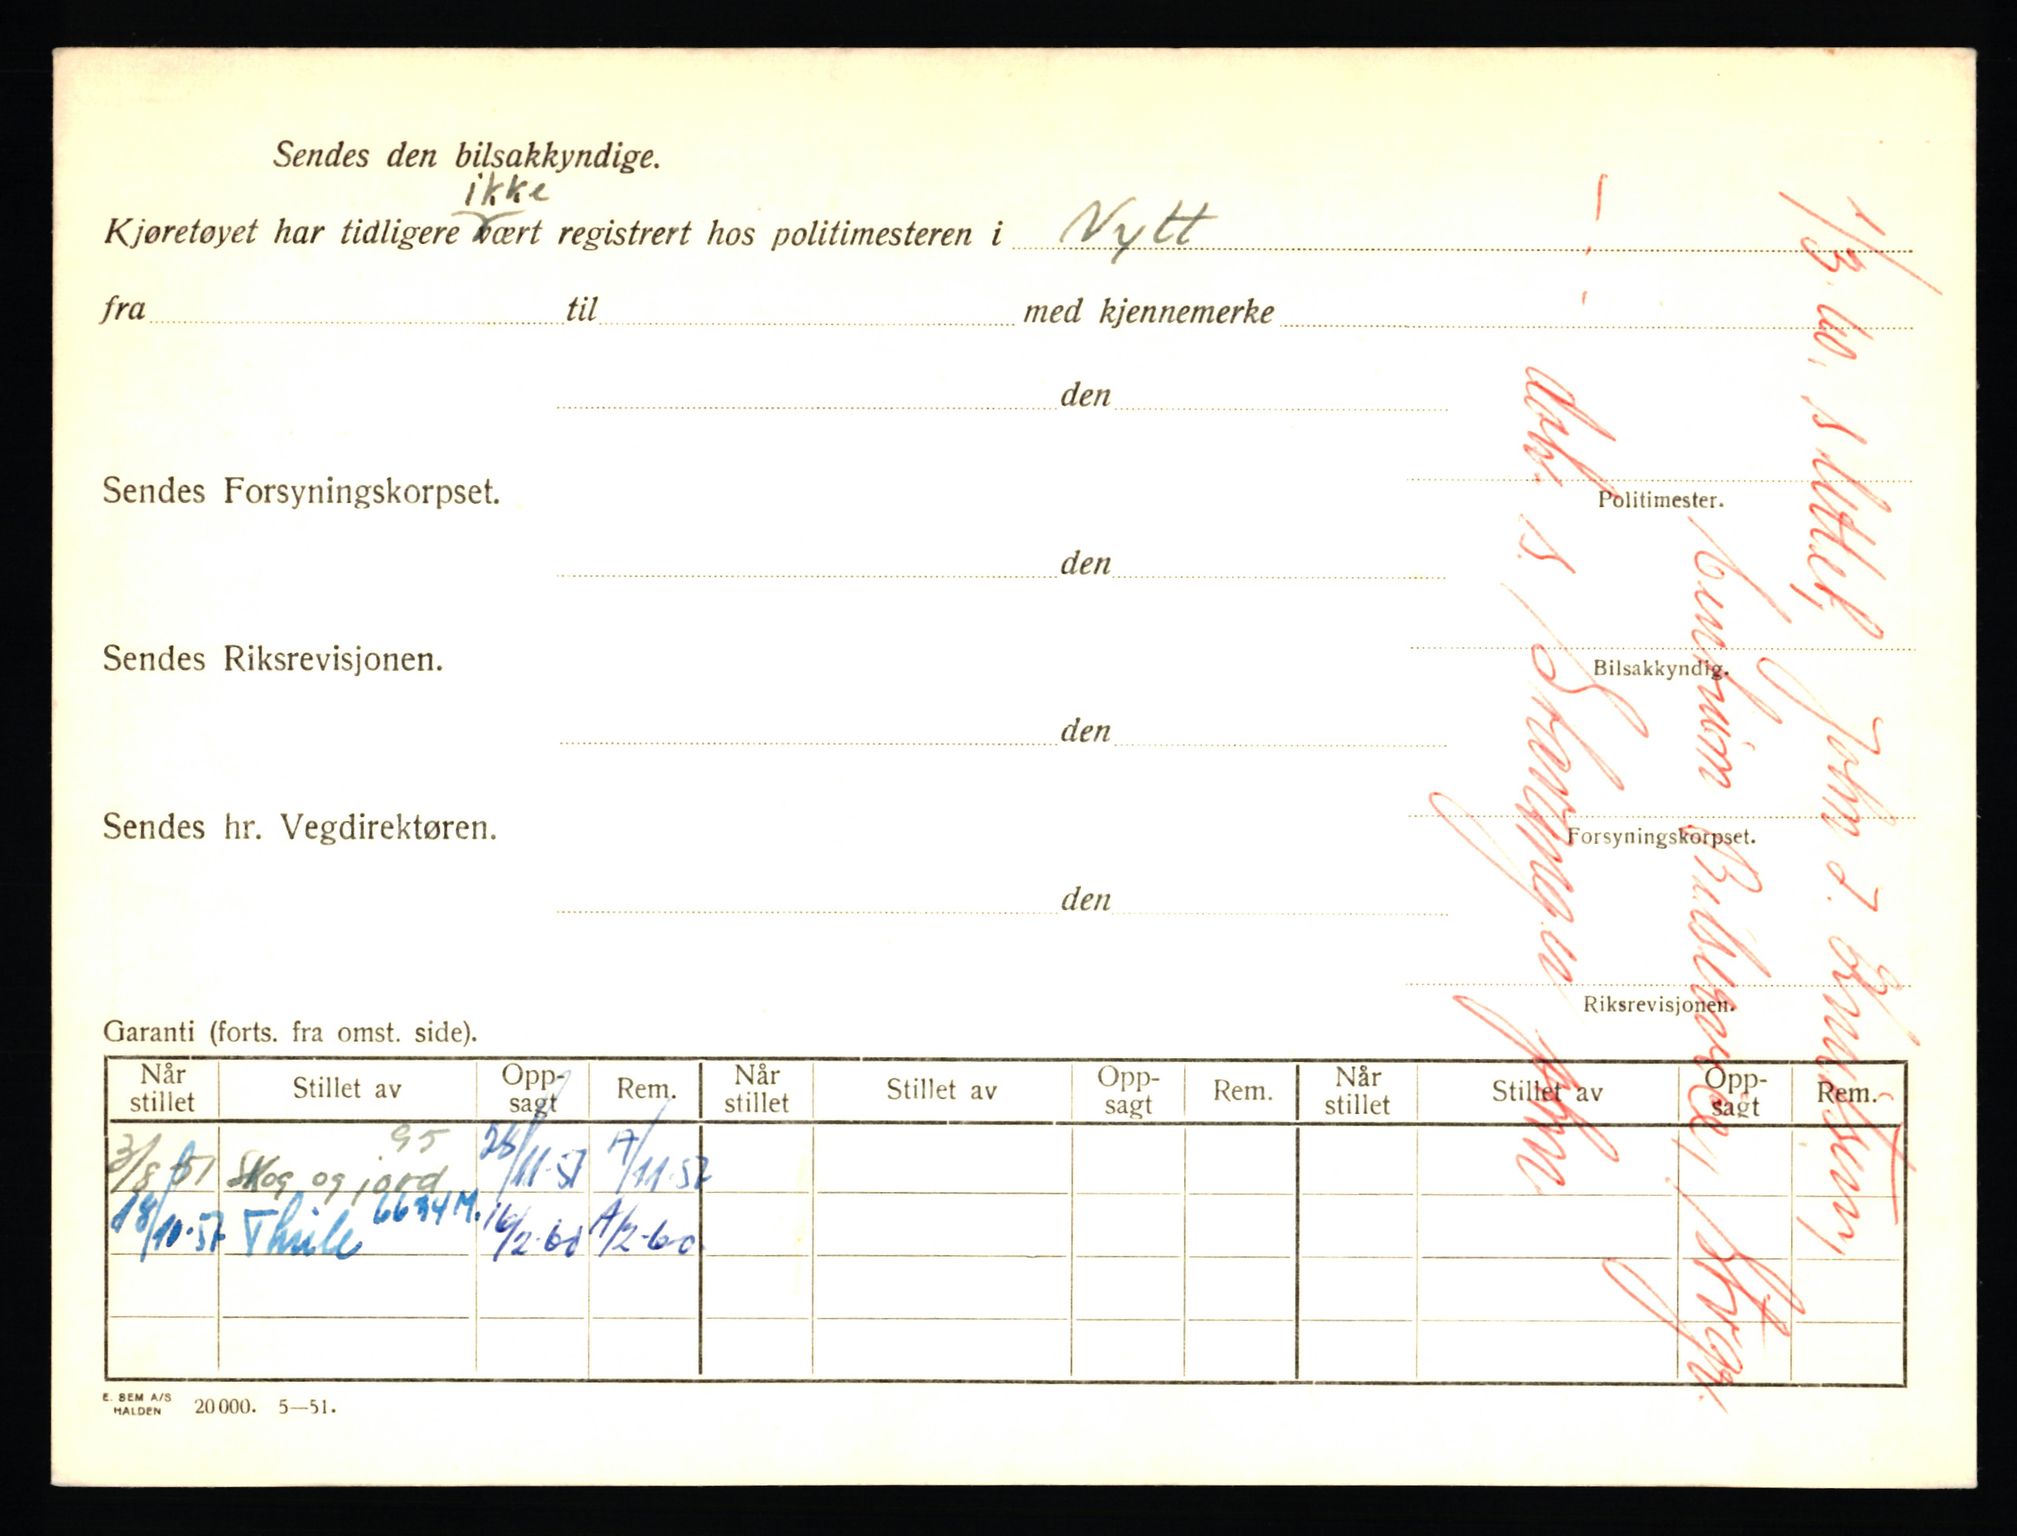 Sendes den bilsakkyndige.
ikke
Kjøretøyet har tidligere vært registrert hos politimesteren i Nytt
fra til med kjennemerke
den
Politimester.
Sendes Forsyningskorpset.
den
Bilsakkyndig.
Sendes Riksrevisjonen.
den
Forsyningskorpset.
Sendes hr. Vegdirektøren.
den
Riksrevisjonen.
Garanti (forts. fra omst. side).
Når stillet Stillet av Opp-sagt Rem. Når stillet Stillet av Opp-sagt Rem. Når stillet Stillet av Opp-sagt Rem.
95
3/8 51 Skog og jord 28/11-57 A/11-57
6634 M.
18/10-57 Thule 16/2-60 A/2-60
E. SEM A/S
HALDEN 20 000. 5—51.
1/3. 60. slettet, John J. Knutsen,